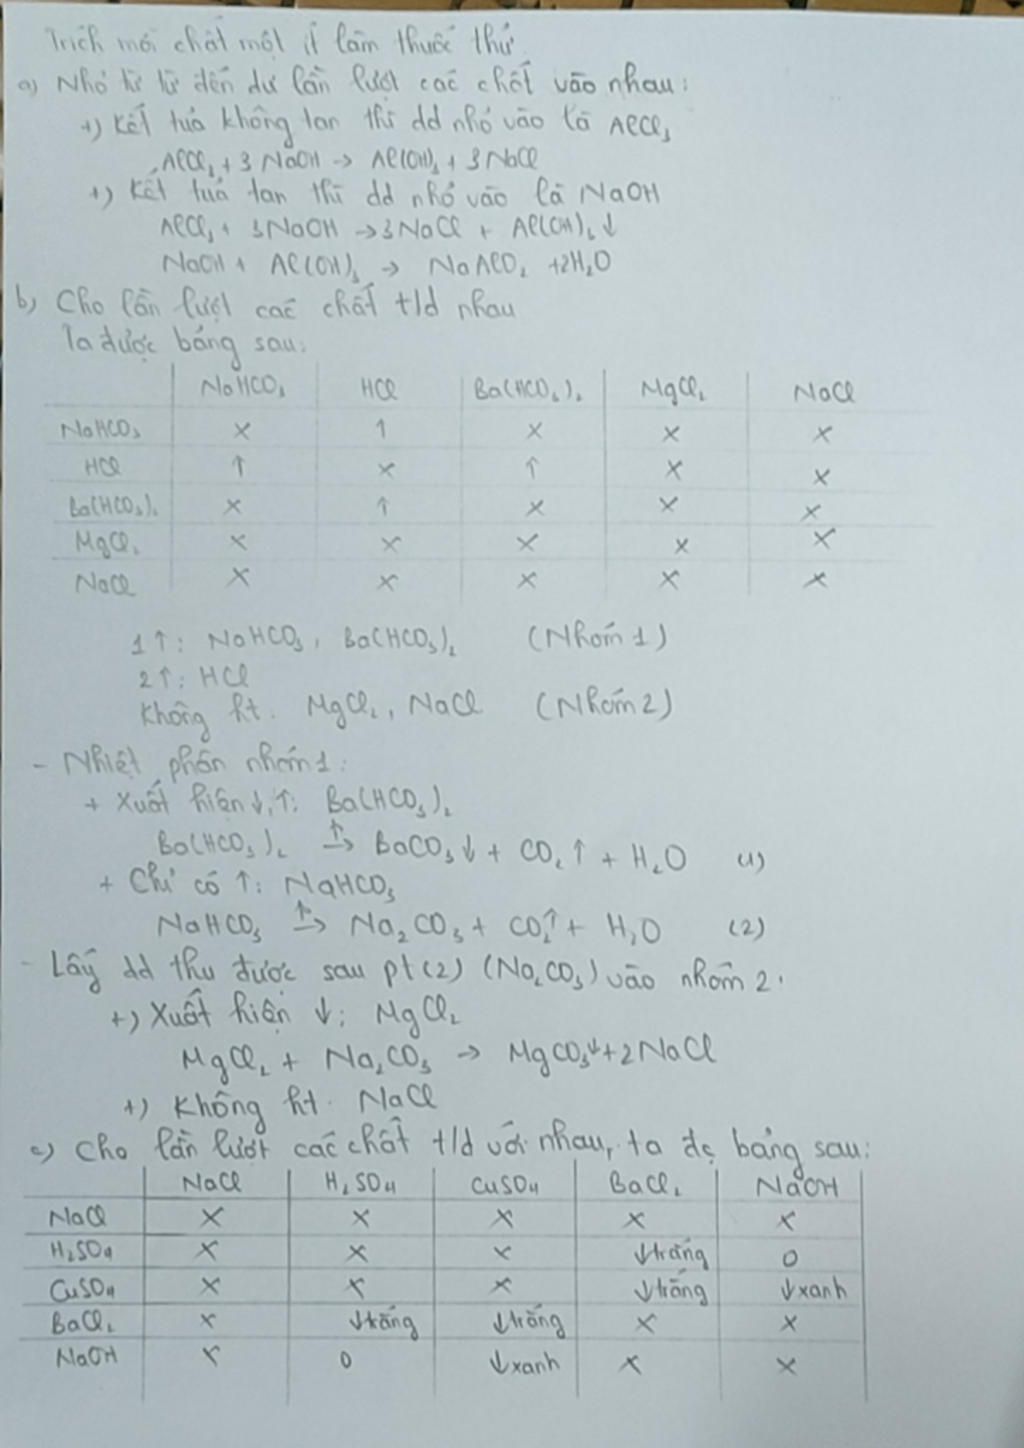 Trích mỗi chất một ít làm thuốc thử
a) Nhỏ từ từ đến dư lần lượt các chất vào nhau:
+) Kết tủa không tan thì dd nhỏ vào là AlCl₃
AlCl₃ + 3NaOH → Al(OH)₃ + 3NaCl
+) Kết tủa tan thì dd nhỏ vào là NaOH
AlCl₃ + 3NaOH → 3NaCl + Al(OH)₃↓
NaOH + Al(OH)₃ → NaAlO₂ + 2H₂O
b) Cho lần lượt các chất t/d nhau
Ta được bảng sau:
NaHCO₃ HCl Ba(HCO₃)₂ MgCl₂ NaCl
NaHCO₃ x ↑ x x x
HCl ↑ x ↑ x x
Ba(HCO₃)₂ x ↑ x x x
MgCl₂ x x x x x
NaCl x x x x x
1↑: NaHCO₃, Ba(HCO₃)₂ (Nhóm 1)
2↑: HCl
Không ht: MgCl₂, NaCl (Nhóm 2)
- Nhiệt phân nhóm 1:
+ Xuất hiện ↓,↑: Ba(HCO₃)₂
Ba(HCO₃)₂ →(t°) BaCO₃↓ + CO₂↑ + H₂O (1)
+ Chỉ có ↑: NaHCO₃
NaHCO₃ →(t°) Na₂CO₃ + CO₂↑ + H₂O (2)
- Lấy dd thu được sau pt(2) (Na₂CO₃) vào nhóm 2.
+) Xuất hiện ↓: MgCl₂
MgCl₂ + Na₂CO₃ → MgCO₃↓ + 2NaCl
+) Không ht: NaCl
c) Cho lần lượt các chất t/d với nhau, ta đc bảng sau:
NaCl H₂SO₄ CuSO₄ BaCl₂ NaOH
NaCl x x x x x
H₂SO₄ x x x ↓trắng 0
CuSO₄ x x x ↓trắng ↓xanh
BaCl₂ x ↓trắng ↓trắng x x
NaOH x 0 ↓xanh x x